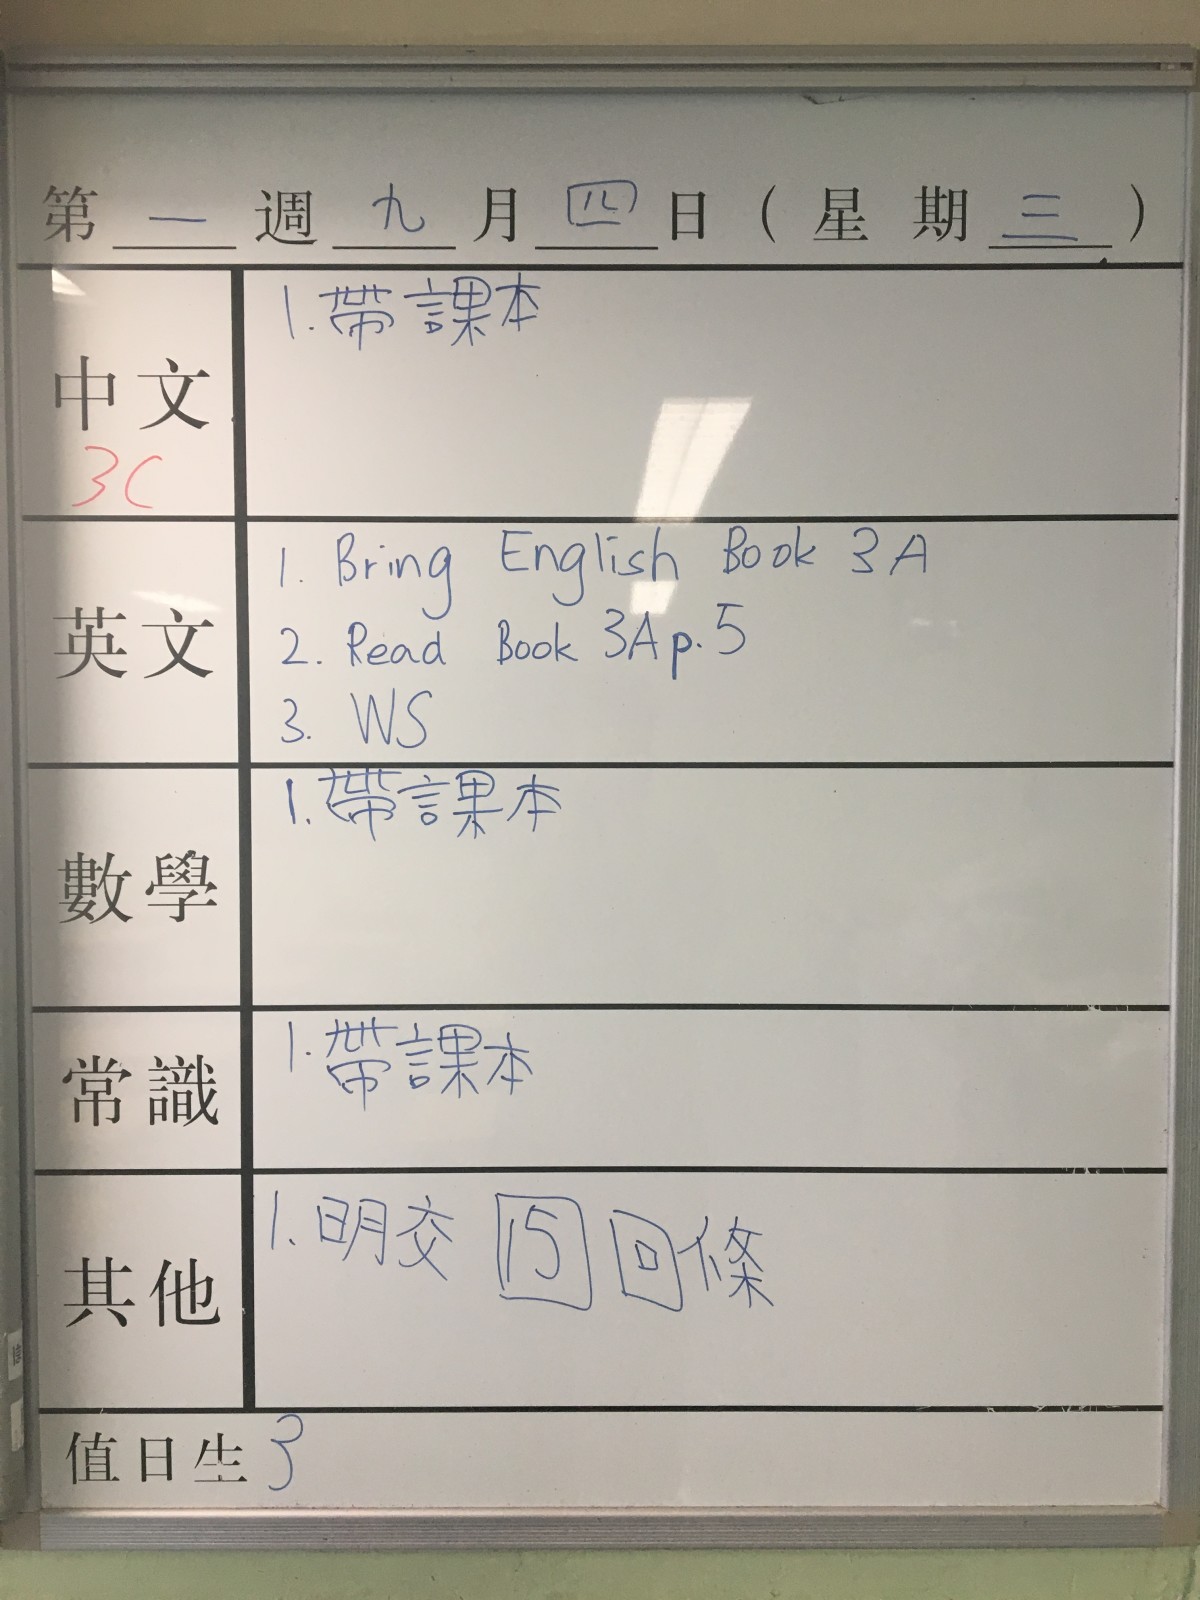 第 一 週 九 月 四 日 ( 星 期 三 )
中文
3C
1. 帶課本
英文
1. Bring English Book 3A
2. Read Book 3A p.5
3. WS
數學
1. 帶課本
常識
1. 帶課本
其他
1. 明交 15 回條
值日生 3